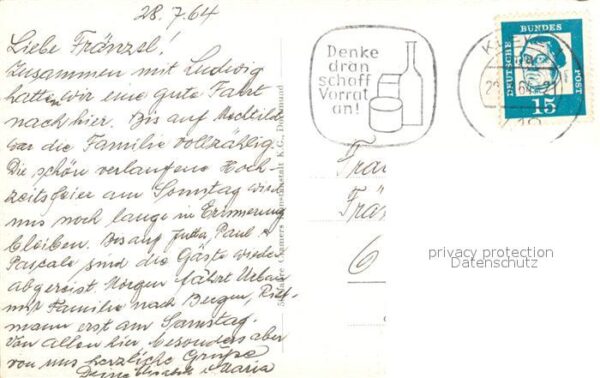 28.7.64
Liebe Fränzel!
Zusammen mit Ludwig
hatten wir eine gute Fahrt
nach hier. Bis auf Mechtild
war die Familie vollzählig.
Die schön verlaufene Hoch-
zeitsfeier am Sonntag wird
uns noch lange in Erinnerung
bleiben. Bis auf Jutta Paul &
Pascale sind die Gäste wieder
abgereist. Morgen fährt
mit Familie nach Bergen,
mann erst am Samstag.
Von allen hier besonders aber
von uns herzliche Grüße
Maria
Cramers Kunstanstalt K.G., Dortmund
Denke
dran
schaff
Vorrat
an!
DEUTSCHE
BUNDES
POST
15
6
privacy protection
Datenschutz